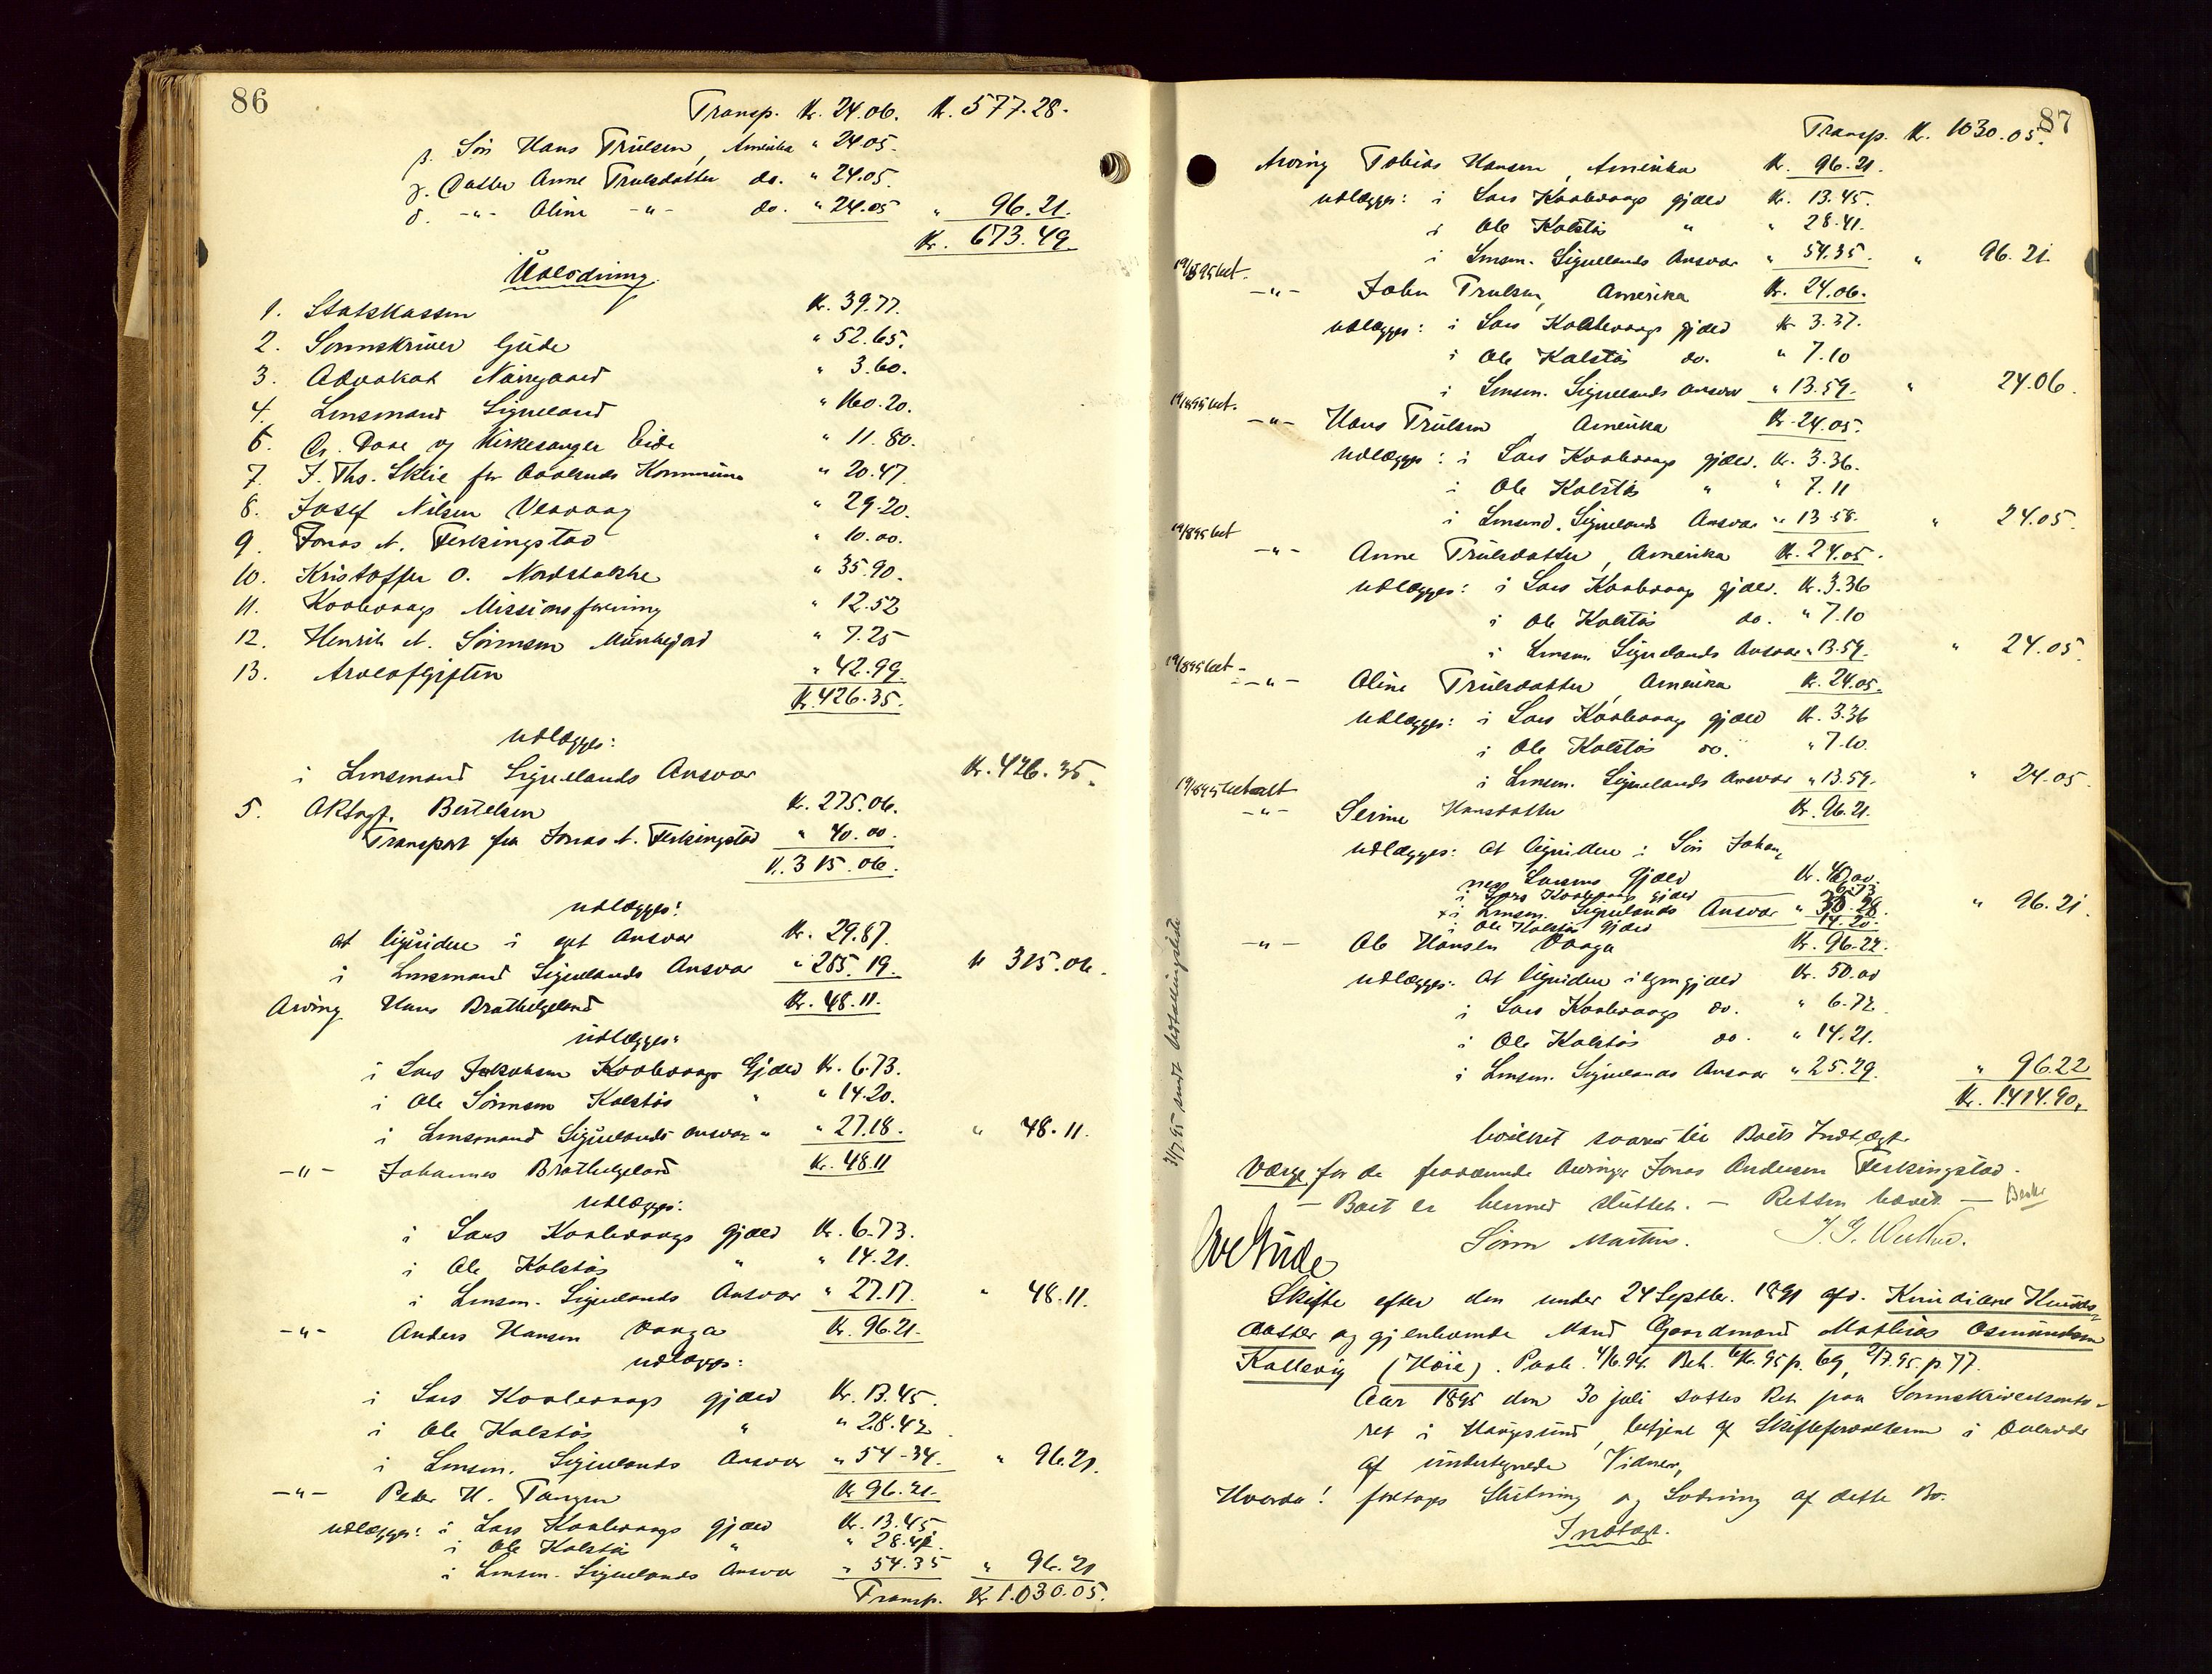 86
Transp. Kr. 24.06. Kr. 577.28.
β. Søn Hans Trulsen, Amerika " 24.05.
γ. Datter Anne Trulsdatter do. " 24.05.
δ. -"- Oline -"- do. " 24.05 " 96.21.
Kr. 673.49.
Udlodning.
1. Statskassen Kr. 39.77.
2. Sorenskriver Gude " 52.65.
3. Advokat Nørregaard " 3.60.
4. Lensmand Sigveland " 160.20.
6. Chr. Dove og Kirkesanger Eide " 11.80.
7. J. Ths. Eklie for Avaldsnes Kommune " 20.47.
8. Josef Nilsen Veavaag " 29.20.
9. Jonas A. Ferkingstad " 10.00.
10. Kristoffer O. Nordstokke " 35.90.
11. Kolvaags Missionsforening " 12.52
12. Henrik A. Sørensen Munkejord " 7.25
13. Arveafgiften " 42.99.
Kr. 426.35.
udlægges:
i Lensmand Sigvelands Ansvar Kr. 426.35.
5. Aktagt. Bertelsen Kr. 275.06.
Transport fra Jonas A. Ferkingstad " 40.00.
Kr. 315.06.
udlægges:
at liqvidere i eget Ansvar Kr. 29.87.
i Lensmand Sigvelands Ansvar " 285.19. Kr 315.06.
Arving Hans Brathelgeland Kr. 48.11.
udlægges:
i Lars Jakobsen Kolvaags Gjæld Kr. 6.73.
i Ole Sørensen Kolstøs " " 14.20.
i Lensmand Sigvelands Ansvar " " 27.18. " 48.11.
-"- Johannes Brathelgeland Kr. 48.11
udlægges:
i Lars Kolvaags gjæld Kr. 6.73.
i Ole Kolstøs " " 14.21.
i Lensm. Sigvelands Ansvar " 27.17. " 48.11.
-"- Anders Hansen Vaaga Kr. 96.21.
udlægges:
i Lars Kolvaags gjæld Kr. 13.45.
i Ole Kolstøs " " 28.42.
i Lensm. Sigvelands Ansvar " 54.34. " 96.21.
-"- Peder H. Tangen Kr 96.21.
udlægges: i Lars Kolvaags gjæld Kr. 13.45
i Ole Kolstøs " " 28.41.
i Lensm. Sigvelands Ansvar " 54.35 " 96.21
Transp. Kr 1.030.05.
87
Transp. Kr. 1030.05.
Arving Tobias Hansen, Amerika Kr. 96.21.
udlægges: i Lars Kolvaags gjæld Kr. 13.45.
i Ole Kolstøs " " 28.41.
i Lensm. Sigvelands Ansvar " 54.35. " 96.21.
19/8 95 bet.
-"- John Trulsen, Amerika Kr. 24.06.
udlægges: i Lars Kolvaags gjæld Kr 3.37.
i Ole Kolstøs do. " 7.10
i Lensm. Sigvelands Ansvar " 13.59. " 24.06.
19/8 95 bet.
-"- Hans Trulsen Amerika Kr. 24.05.
udlægges: i Lars Kolvaags gjæld. Kr. 3.36.
i Ole Kolstøs " " 7.11
i Lensmd. Sigvelands Ansvar " 13.58. " 24.05.
19/8 95 bet
-"- Anne Trulsdatter, Amerika Kr. 24.05.
udlægges: i Lars Kolvaags gjæld. Kr. 3.36
i Ole Kolstøs do. " 7.10
i Lensm. Sigvelands Ansvar " 13.59. " 24.05.
19/8 95 bet.
-"- Oline Trulsdatter, Amerika Kr. 24.05.
udlægges: i Lars Kolvaags gjæld Kr. 3.36
i Ole Kolstøs do. " 7.10.
i Lensm. Sigvelands Ansvar " 13.59. " 24.05.
19/8 95 betalt
-"- Serine Hansdatter Kr. 96.21.
udlægges: at liqvidere i Søn Johan-
nes Larsens Gjæld Kr. 40,00.
i Lars Kolvaags gjæld 6.73
i Lensm. Sigvelands Ansvar " 28. " 96.21.
i Ole Kolstøs gjæld 14.20.
-"- Ole Hansen Vaaga Kr. 96.22.
udlægges: at liqvidere i egen gjæld Kr. 50.00
i Lars Kolvaags do. " 6.72.
i Ole Kolstøs do. " 14.21.
i Lensm. Sigvelands Ansvar " 25.29. " 96.22
Kr. 1.414.90.
31/7 95 sendt
hvilket svarer til Boets Indtægt.
Værge for de fraværende Arvinger Jonas Andersen Ferkingstad.
- Boet er hermed sluttet. - Retten hævet. -
Ove Gude Søren Martins.
Skifte efter den under 24 Septbr. 1891 afd. Knudiane Knuds-
datter og gjenlevende Mand Gaardmand Mathias Osmundsen
Kallevig (Høie). Paab. 4/6.94. Beh. 6/6.95 p. 69, 2/7.95. p. 77.
Aar 1895 den 30 juli sattes Ret paa Sorenskriverkonto-
ret i Haugesund, betjent af Skifteforvalteren i Overvær
af undertegnede Vidner,
Hvorda! foretages Slutning og Lodning af dette Bo.
Indtægt.